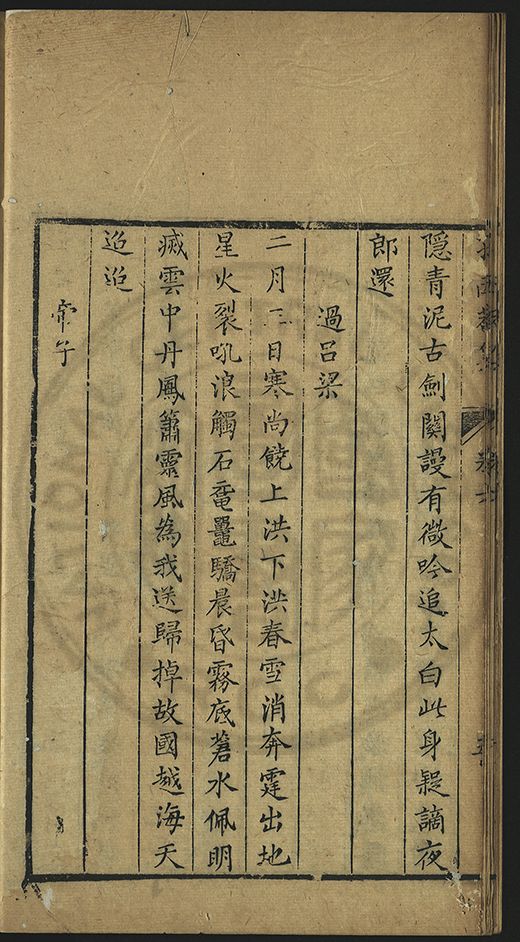 隱青泥古劍關謾有微吟追太白此身疑謫夜
郎還
過呂梁
二月三日寒尚饒上洪下洪春雪消奔霆出地
星火裂吼浪觸石黿鼉驕晨昏霧底蒼水佩明
滅雲中丹鳳簫靈風為我送歸掉故國越海天
迢迢